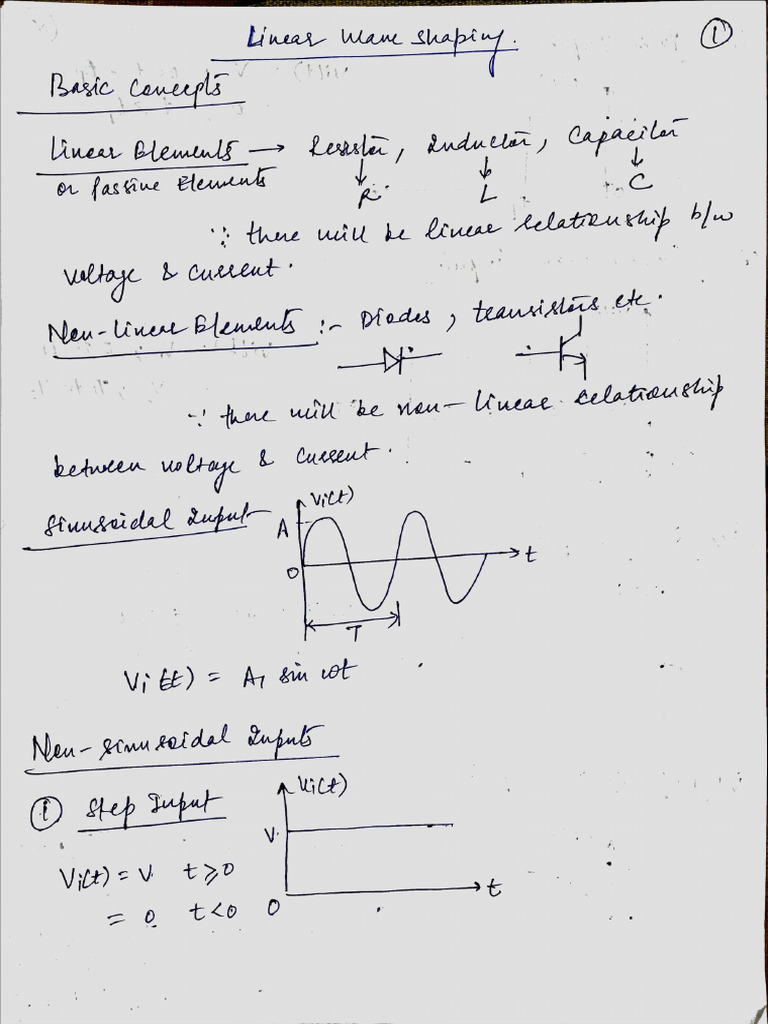 Linear Wave shaping.
①
Basic Concepts
Linear Elements → Resistor, Inductor, Capacitor
or Passive Elements ↓ R ↓ L ↓ C
∵ there will be linear relationship b/w
voltage & current.
Non-linear Elements :- Diodes, transistors etc.
∵ there will be non-linear relationship
between voltage & current.
Sinusoidal Input
Vi(t)
A
0
t
T
Vi(t) = A, sin ωt
Non-sinusoidal Inputs
① Step Input
Vi(t)
V
Vi(t) = V t ≥ 0
t
= 0 t < 0
0